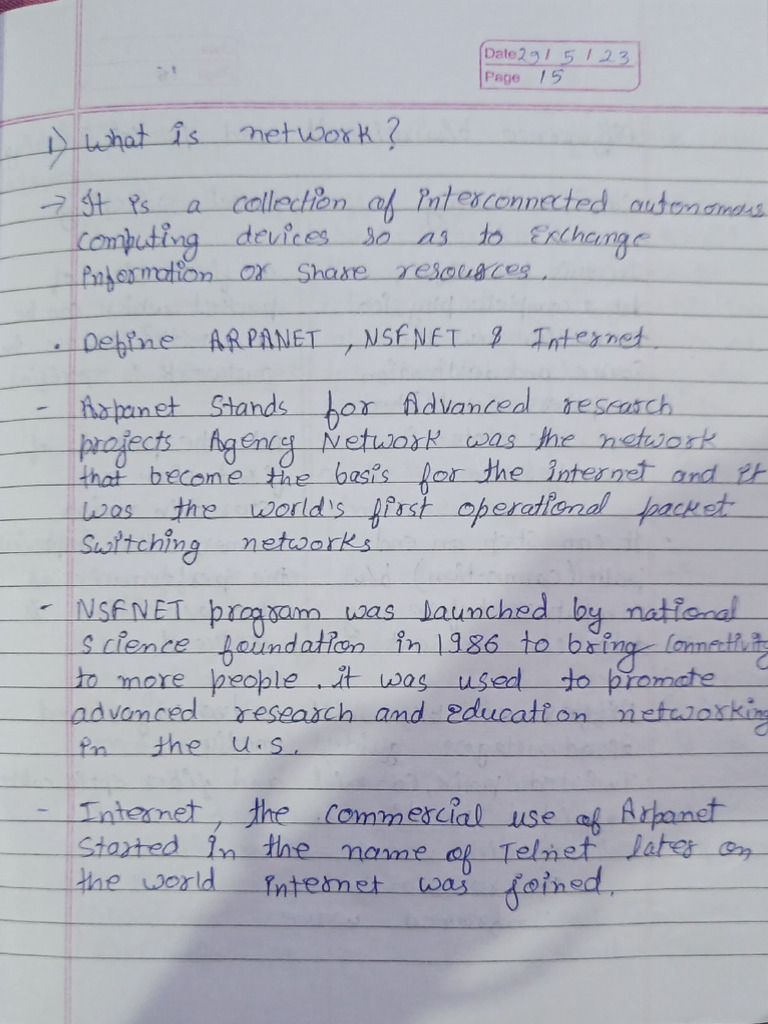 Date 29/5/23
Page 15
1) What is network?
→ It is a collection of interconnected autonomous
computing devices so as to Exchange
information or share resources.
• Define ARPANET, NSFNET & Internet.
- Arpanet Stands for Advanced research
projects Agency Network was the network
that become the basis for the internet and it
was the world's first operational packet
switching networks
- NSFNET program was launched by national
science foundation in 1986 to bring connectivity
to more people. it was used to promote
advanced research and Education networking
in the U.S.
- Internet, the commercial use of Arpanet
Started in the name of Telnet later on
the world internet was joined.